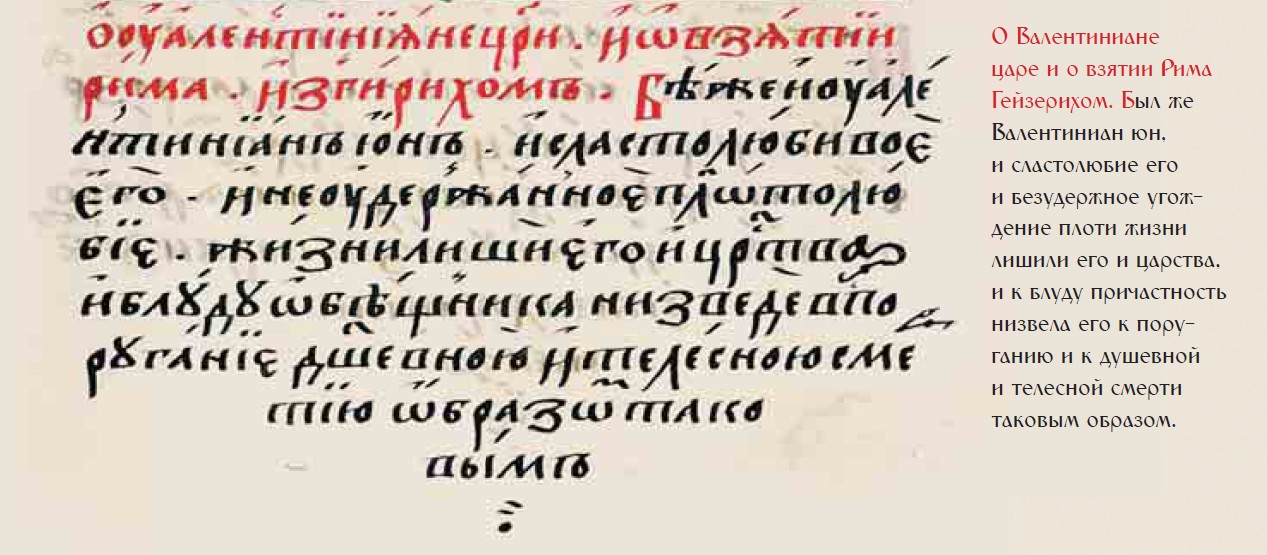 Ѻ оуалентїнїѧне цр҃и . и ѡ взѧтїи
рима . изгирихомъ . Бѣ же оуале
нтинїанъ їонъ . и сластолюбивое
его . и неоудержанное плѡтолю
бїе . жизни лиши его и цр҃тва
и блꙋдꙋ ѡбѣщника низведе в по
рꙋганїе дш҃евною и телесною сме
тїю ѡбразѡ тако
вымъ
О Валентиниане
царе и о взятии Рима
Гейзерихом. Был же
Валентиниан юн,
и сластолюбие его
и безудержное угож-
дение плоти жизни
лишили его и царства,
и к блуду причастность
низвела его к пору-
ганию и к душевной
и телесной смерти
таковым образом.